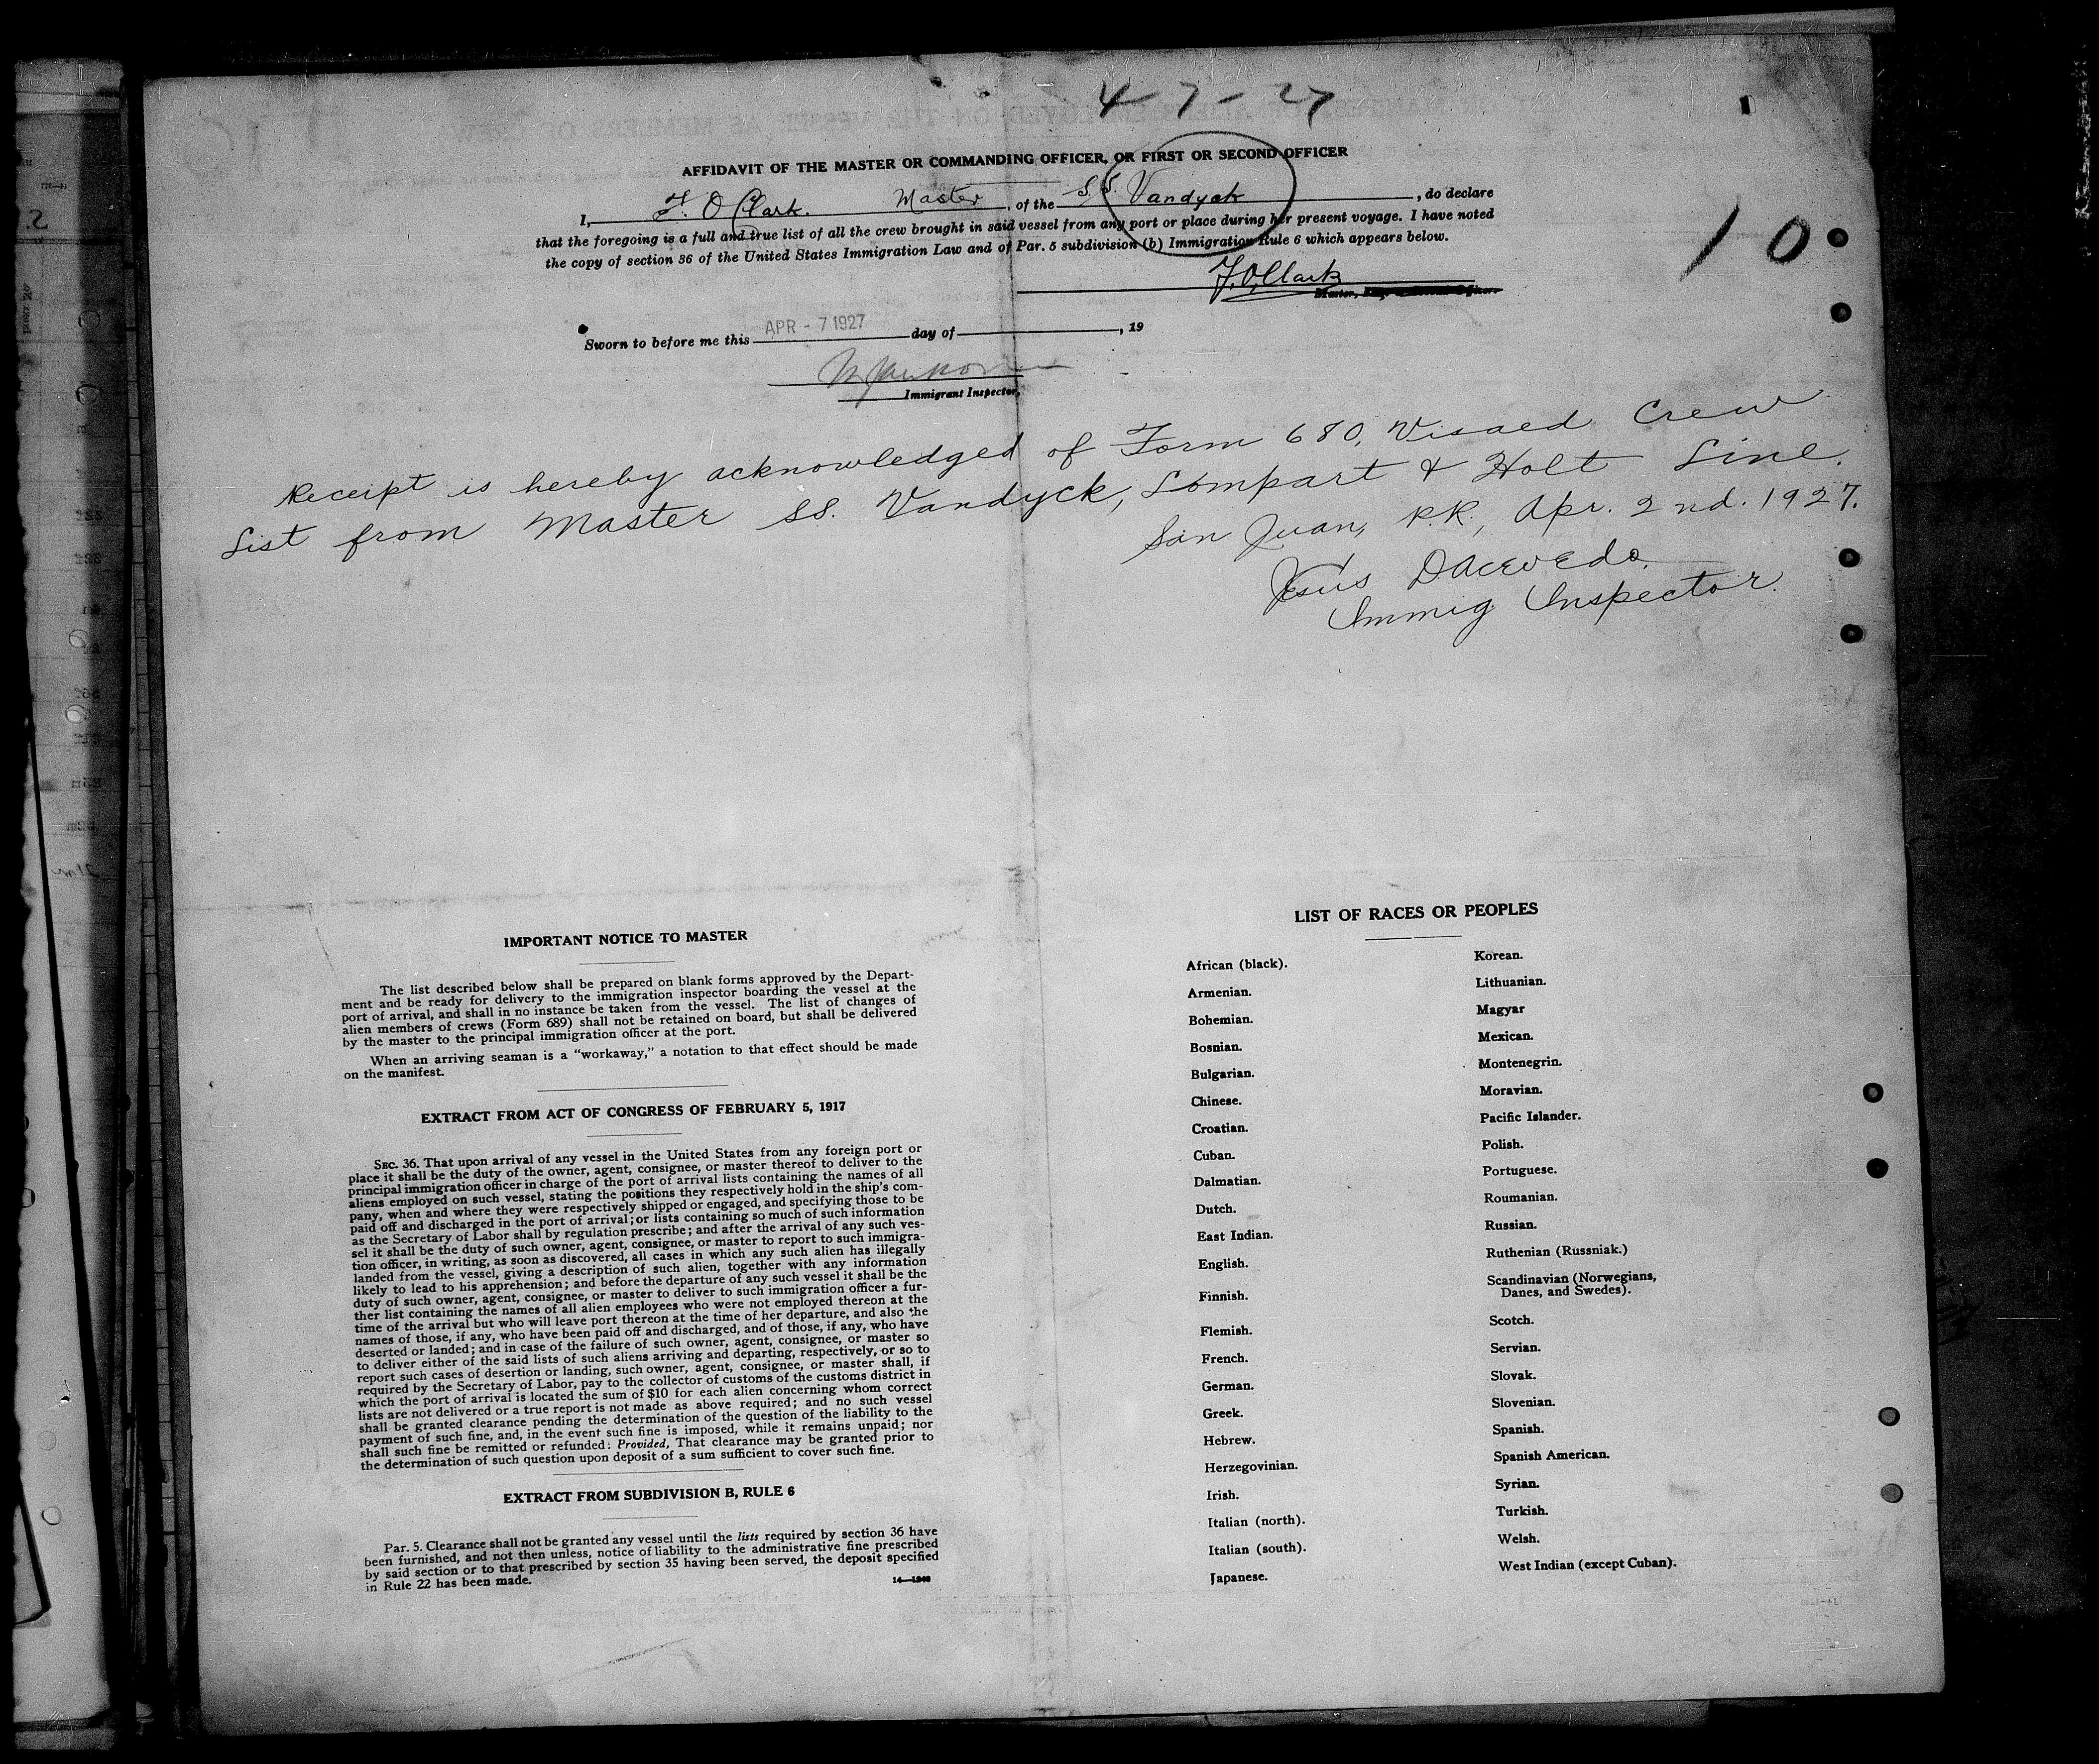 4-7-27
AFFIDAVIT OF THE MASTER OR COMMANDING OFFICER, OR FIRST OR SECOND OFFICER
I, F. O Clark. Master, of the S.S. Vandyck, do declare
that the foregoing is a full and true list of all the crew brought in said vessel from any port or place during her present voyage. I have noted
the copy of section 36 of the United States Immigration Law and of Par. 5 subdivision (b) Immigration Rule 6 which appears below.
10
F.O. Clark
Master,
Sworn to before me this APR - 7 1927 day of , 19
Immigrant Inspector.
Receipt is hereby acknowledged of Form 680, Visaed Crew
List from Master SS. Vandyck, Lompart & Holt Line.
San Juan, P.R., Apr. 2nd. 1927.
Jesús D Acevedo.
Immig Inspector.
IMPORTANT NOTICE TO MASTER
The list described below shall be prepared on blank forms approved by the Depart-
ment and be ready for delivery to the immigration inspector boarding the vessel at the
port of arrival, and shall in no instance be taken from the vessel. The list of changes of
alien members of crews (Form 689) shall not be retained on board, but shall be delivered
by the master to the principal immigration officer at the port.
When an arriving seaman is a "workaway," a notation to that effect should be made
on the manifest.
EXTRACT FROM ACT OF CONGRESS OF FEBRUARY 5, 1917
SEC. 36. That upon arrival of any vessel in the United States from any foreign port or
place it shall be the duty of the owner, agent, consignee, or master thereof to deliver to the
principal immigration officer in charge of the port of arrival lists containing the names of all
aliens employed on such vessel, stating the positions they respectively hold in the ship's com-
pany, when and where they were respectively shipped or engaged, and specifying those to be
paid off and discharged in the port of arrival; or lists containing so much of such information
as the Secretary of Labor shall by regulation prescribe; and after the arrival of any such ves-
sel it shall be the duty of such owner, agent, consignee, or master to report to such immigra-
tion officer, in writing, as soon as discovered, all cases in which any such alien has illegally
landed from the vessel, giving a description of such alien, together with any information
likely to lead to his apprehension; and before the departure of any such vessel it shall be the
duty of such owner, agent, consignee, or master to deliver to such immigration officer a fur-
ther list containing the names of all alien employees who were not employed thereon at the
time of the arrival but who will leave port thereon at the time of her departure, and also the
names of those, if any, who have been paid off and discharged, and of those, if any, who have
deserted or landed; and in case of the failure of such owner, agent, consignee, or master so
to deliver either of the said lists of such aliens arriving and departing, respectively, or so to
report such cases of desertion or landing, such owner, agent, consignee, or master shall, if
required by the Secretary of Labor, pay to the collector of customs of the customs district in
which the port of arrival is located the sum of $10 for each alien concerning whom correct
lists are not delivered or a true report is not made as above required; and no such vessel
shall be granted clearance pending the determination of the question of the liability to the
payment of such fine, and, in the event such fine is imposed, while it remains unpaid; nor
shall such fine be remitted or refunded: Provided, That clearance may be granted prior to
the determination of such question upon deposit of a sum sufficient to cover such fine.
EXTRACT FROM SUBDIVISION B, RULE 6
Par. 5. Clearance shall not be granted any vessel until the lists required by section 36 have
been furnished, and not then unless, notice of liability to the administrative fine prescribed
by said section or to that prescribed by section 35 having been served, the deposit specified
in Rule 22 has been made.
14—1240
LIST OF RACES OR PEOPLES
African (black).
Armenian.
Bohemian.
Bosnian.
Bulgarian.
Chinese.
Croatian.
Cuban.
Dalmatian.
Dutch.
East Indian.
English.
Finnish.
Flemish.
French.
German.
Greek.
Hebrew.
Herzegovinian.
Irish.
Italian (north).
Italian (south).
Japanese.
Korean.
Lithuanian.
Magyar
Mexican.
Montenegrin.
Moravian.
Pacific Islander.
Polish.
Portuguese.
Roumanian.
Russian.
Ruthenian (Russniak.)
Scandinavian (Norwegians,
Danes, and Swedes).
Scotch.
Servian.
Slovak.
Slovenian.
Spanish.
Spanish American.
Syrian.
Turkish.
Welsh.
West Indian (except Cuban).